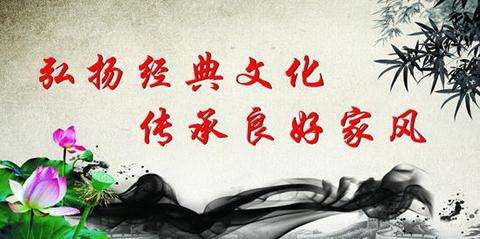 弘扬经典文化
传承良好家风